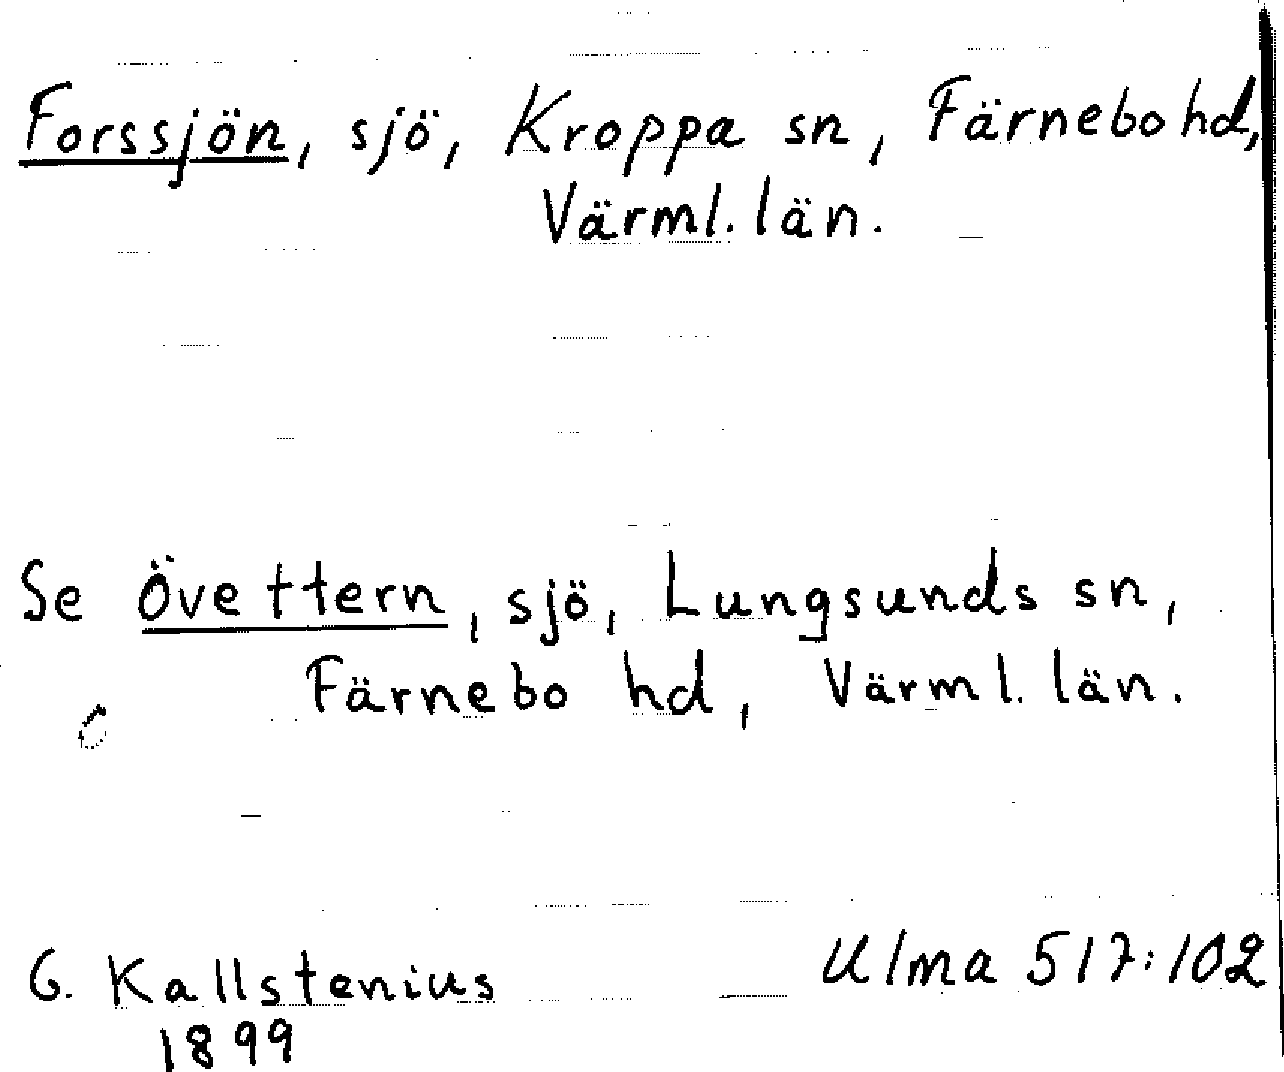 Forssjön, sjö, Kroppa sn, Färnebo hd,
Värml. län.
Se Övettern, sjö, Lungsunds sn,
Färnebo hd, Värml. län.
G. Kallstenius
1899
Ulma 517:102